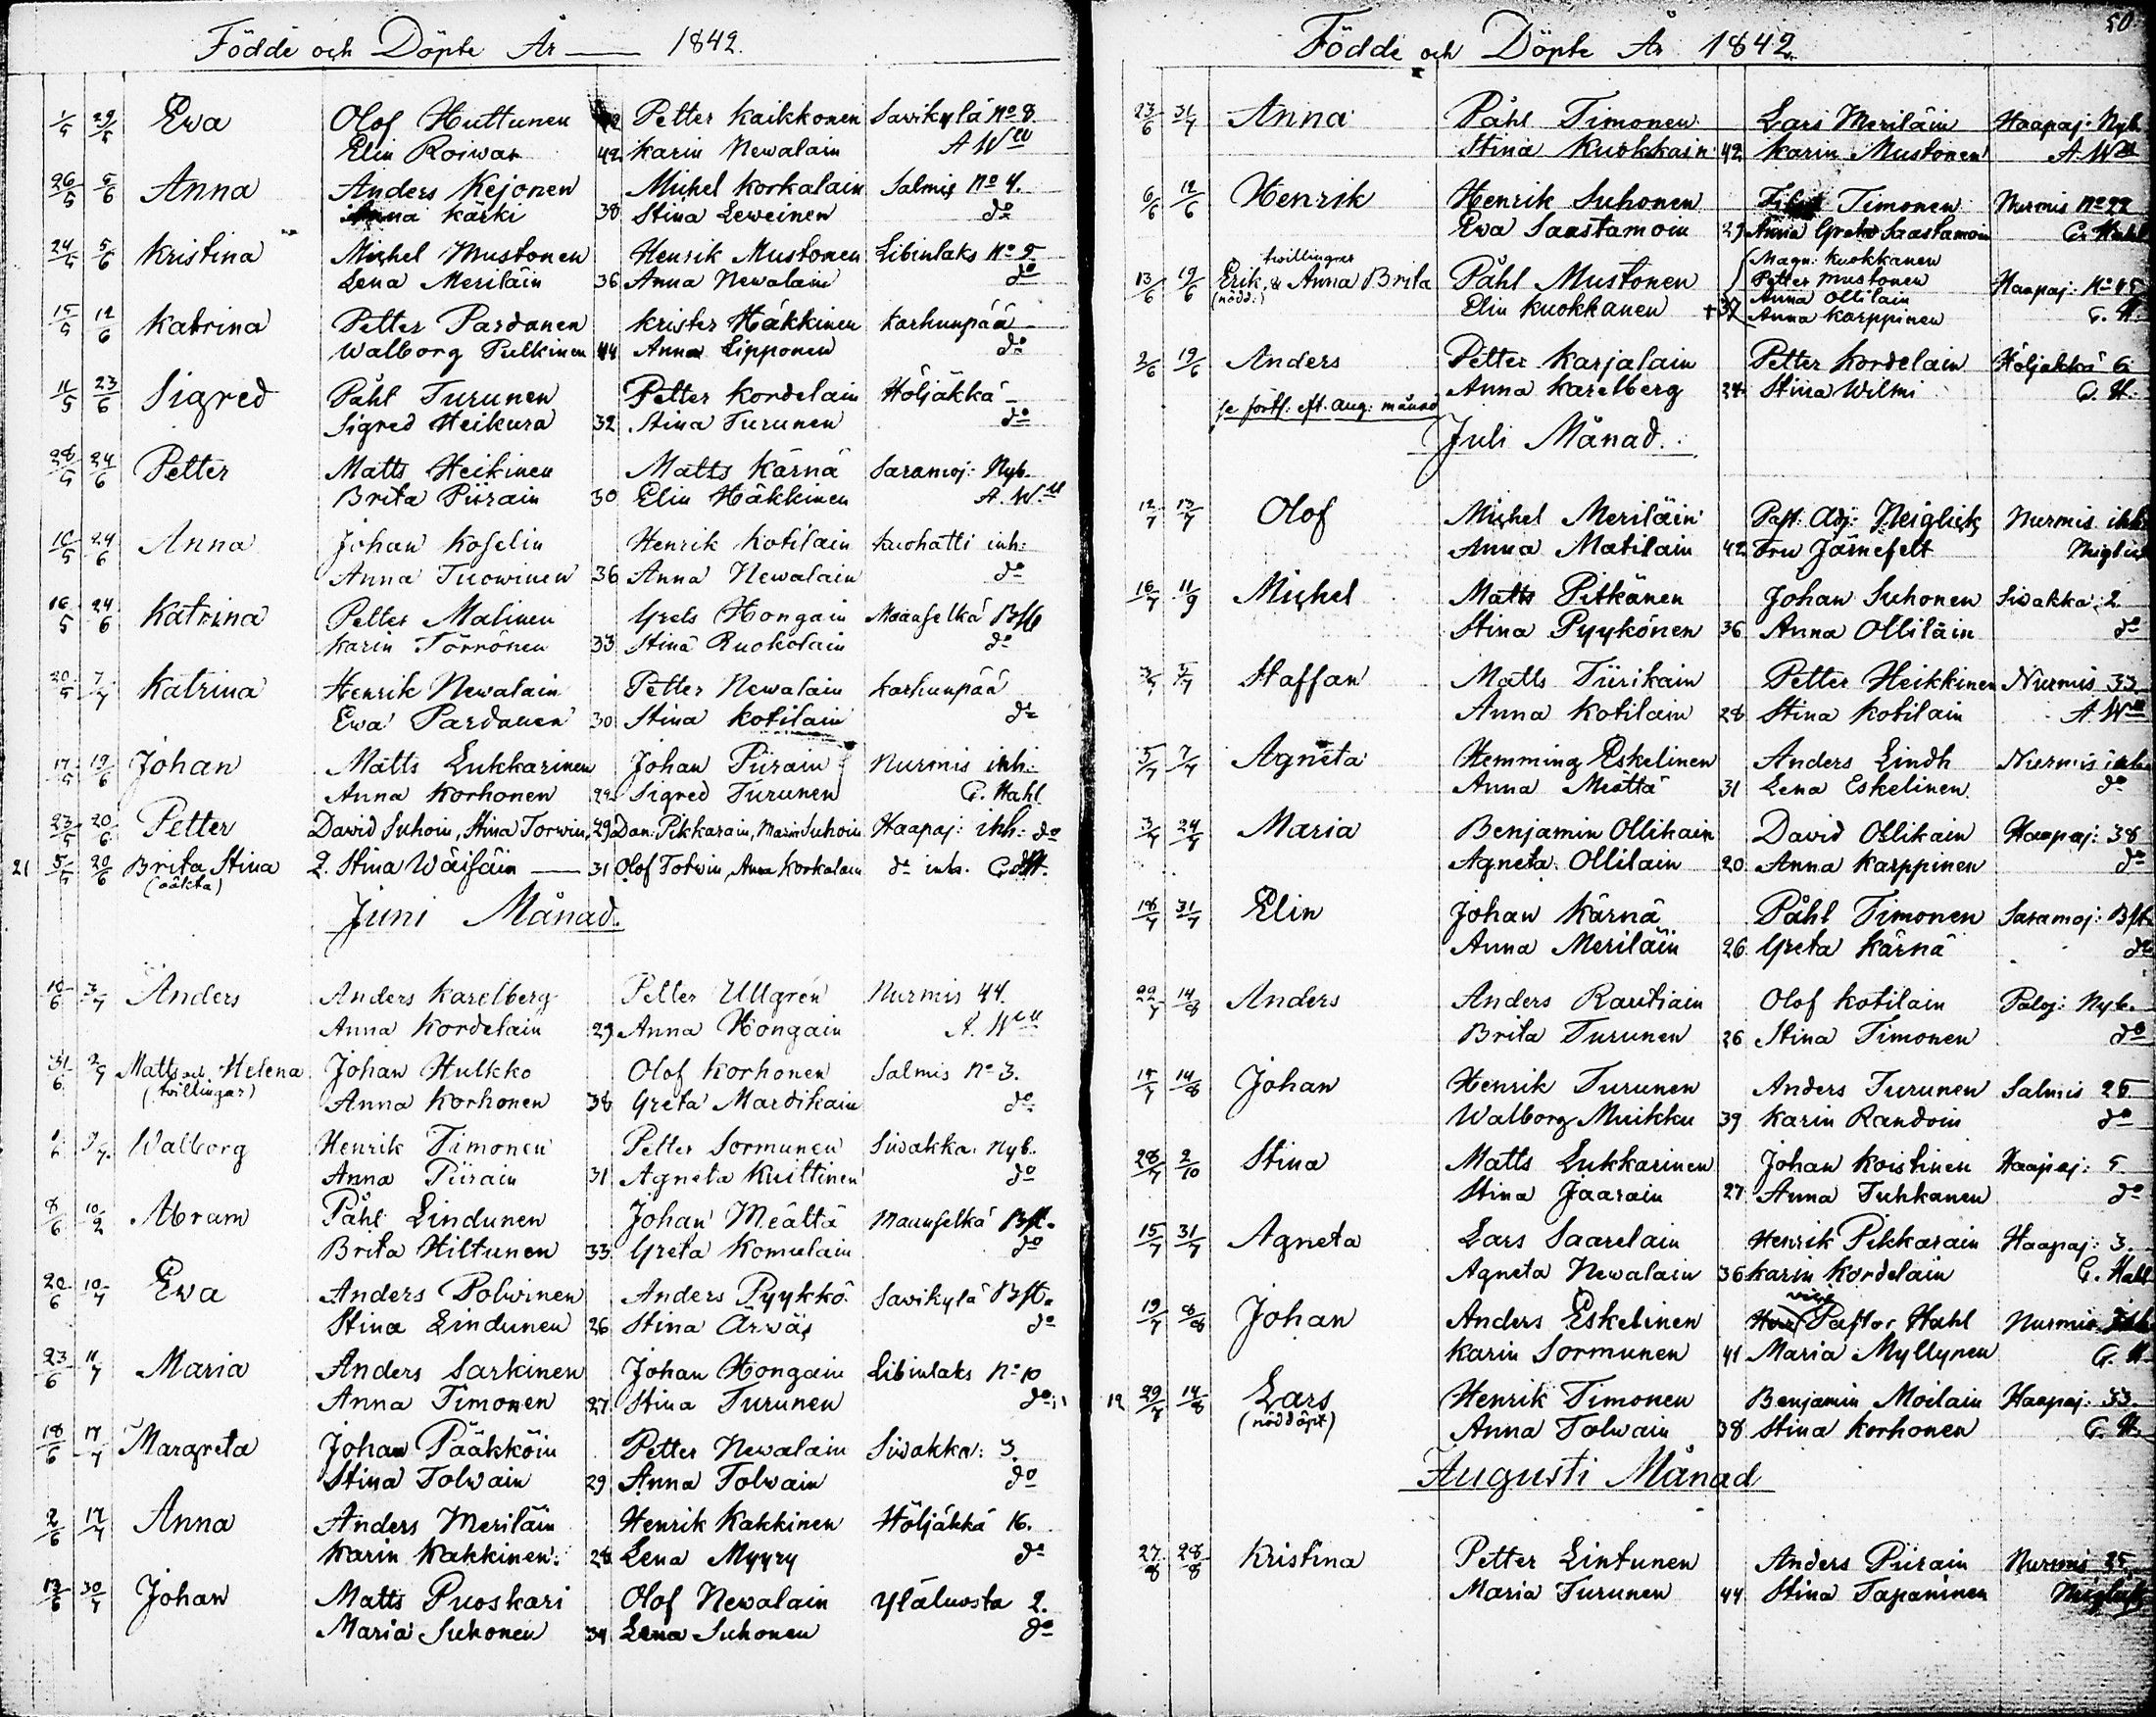 Födde och Döpte År — 1842.
1/5 29/5 Ewa Olof Huttunen Petter Kaikkonen Savikylä No 8
Elin Roiwas 42 Karin Newalain A Wll
26/5 5/6 Anna Anders Kejonen Michel Korkalain Salmis No 4.
Anna Kärki 38 Stina Leweinen do
24/5 5/6 Kristina Michel Mustonen Henrik Mustonen Libinlaks No 5
Lena Meriläin 36 Anna Newalain do
15/5 12/6 Katrina Petter Pardanen Krister Häkkinen Karhunpää
Walborg Pulkinen 44 Anna Lipponen do
11/5 23/6 Sigred Påhl Turunen Petter Kordelain Höljäkkä
Sigred Heikura 32 Stina Turunen do
28/5 24/6 Petter Matts Heikinen Matts Kärnä Saramoj: Nyb.
Brita Piirain 30 Elin Häkkinen A. W.ll
16/5 24/6 Anna Johan Koselin Henrik Kotilain Kuohatti inh:
Anna Tuowinen 36 Anna Newalain do
16/5 24/6 Katrina Petter Malinen Grels Hongain Maanselkä Bst
Karin Törrönen 33 Stina Ruokolain do
20/5 7/7 Katrina Henrik Newalain Petter Newalain Karhunpää
Ewa Pardanen 30 Stina Kotilain do
17/5 19/6 Johan Matts Lukkarinen Johan Piirain Nurmis inh:
Anna Korhonen 22 Sigred Turunen G. Hahl
23/5 20/6 Petter David Suhoin, Stina Torwin, 29 Dan: Pikkarain, Maria Suhoin Haapaj: ihh: do
21 5/5 20/6 Brita Stina Q. Stina Wäisäin — 31 Olof Totwin, Anna Korkalain do inh. G. H.
(oäkta)
Juni Månad.
10/6 3/7 Anders Anders Karelberg Petter Ullgrén Nurmis 44.
Anna Kordelain 29 Anna Hongain A. Wll
31/6 2/7 Matts och Helena Johan Hulkko Olof Korhonen Salmis No 3.
(tvillingar) Anna Korhonen 38 Greta Mardikain do
1/6 Walborg Henrik Timonen Petter Sormunen Siwakka. Nyb.
Anna Piirain 31 Agneta Kuittinen do
8/6 10/2 Abram Påhl Lindunen Johan Meättä Maanselkä Bst.
Brita Hiltunen 33 Greta Komulain do
20/6 10/7 Ewa Anders Polwinen Anders Pyykkö Savikylä Bst.
Stina Lindunen 26 Stina Ärwäs do
23/6 11/7 Maria Anders Sarkinen Johan Hongain Libinlaks No 10
Anna Timonen 27 Stina Turunen do
18/6 17/7 Margreta Johan Pääkköin Petter Newalain Siwakka: 3.
Stina Tolwain 29 Anna Tolwain do
2/6 17/7 Anna Anders Meriläin Henrik Kakkinen Höljäkkä 16.
Karin Kakkinen. 28 Lena Myyry do
12/6 30/7 Johan Matts Puoskari Olof Newalain Yläluosta 2.
Maria Suhonen 34 Lena Suhonen do
50
Födde och Döpte År 1842.
23/6 31/7 Anna Påhl Timonen Lars Meriläin Haapaj: Nyb
Stina Kuokkain 42 Karin Mustonen A. Wll
6/6 12/6 Henrik Henrik Suhonen Timonen Nurmis No 22
Ewa Saastamoin 29 Anna Greta Saastamoin G. Hahl
twillingar Magn: Kuokkanen
13/6 19/6 Erik, & Anna Brita Påhl Mustonen Petter Mustonen Haapaj: No 45
(nödd:) Anna Ollilain
Elin Kuokkanen + 37 Anna Karppinen G. H.
2/6 19/6 Anders Petter Karjalain Petter Kordelain Höljäkkä 6
Anna Karelberg 24 Stina Wilmi G. H.
se forts. eft. Aug: månad
Juli Månad.
12/7 13/7 Olof Michel Meriläin Past: Adj: Neiglick Nurmis ihh
Anna Matilain 42 Fru Järnefelt
16/7 11/9 Michel Matts Pitkänen Johan Suhonen Siwakka: 2
Stina Pyykönen 36 Anna Ollilain do
Staffan Matts Tiirikain Petter Heikkinen Nurmis 33
Anna Kotilain 28 Stina Kotilain A. Wll
5/7 7/7 Agneta Hemming Eskelinen Anders Lindh Nurmis inh
Anna Mättä 31 Lena Eskelinen. do
3/7 24/7 Maria Benjamin Ollikain David Ollikain Haapaj: 38
Agneta Ollilain 20 Anna Karppinen do
18/7 31/7 Elin Johan Kärnä Påhl Timonen Saramoj: Bst.
Anna Meriläin 26 Greta Kärnä do
22/7 14/8 Anders Anders Rautiain Olof Kotilain Paloj: Nyb.
Brita Turunen 26 Stina Timonen do
14/8 Johan Henrik Turunen Anders Turunen Salmis 25
Walborg Muikku 39 Karin Randoin do
28/7 2/10 Stina Matts Lukkarinen Johan Koistinen Haapaj: 5
Stina Jaarain 27 Anna Tuhkanen do
15/7 31/7 Agneta Lars Saarelain Henrik Pikkarain Haapaj: 3.
Agneta Newalain 36 Karin Kordelain G. Hahl
19/7 8/8 Johan Anders Eskelinen vice Pastor Hahl Nurmis
Karin Sormunen 41 Maria Myllynen G. H
12 29/7 14/8 Lars Henrik Timonen Benjamin Moilain Haapaj: 33.
(nöddöpt) Anna Tolwain 38 Stina Korhonen G. H.
Augusti Månad
27/8 28/8 Kristina Petter Lintunen Anders Piirain Nurmis 25
Maria Turunen 44 Stina Tapaninen